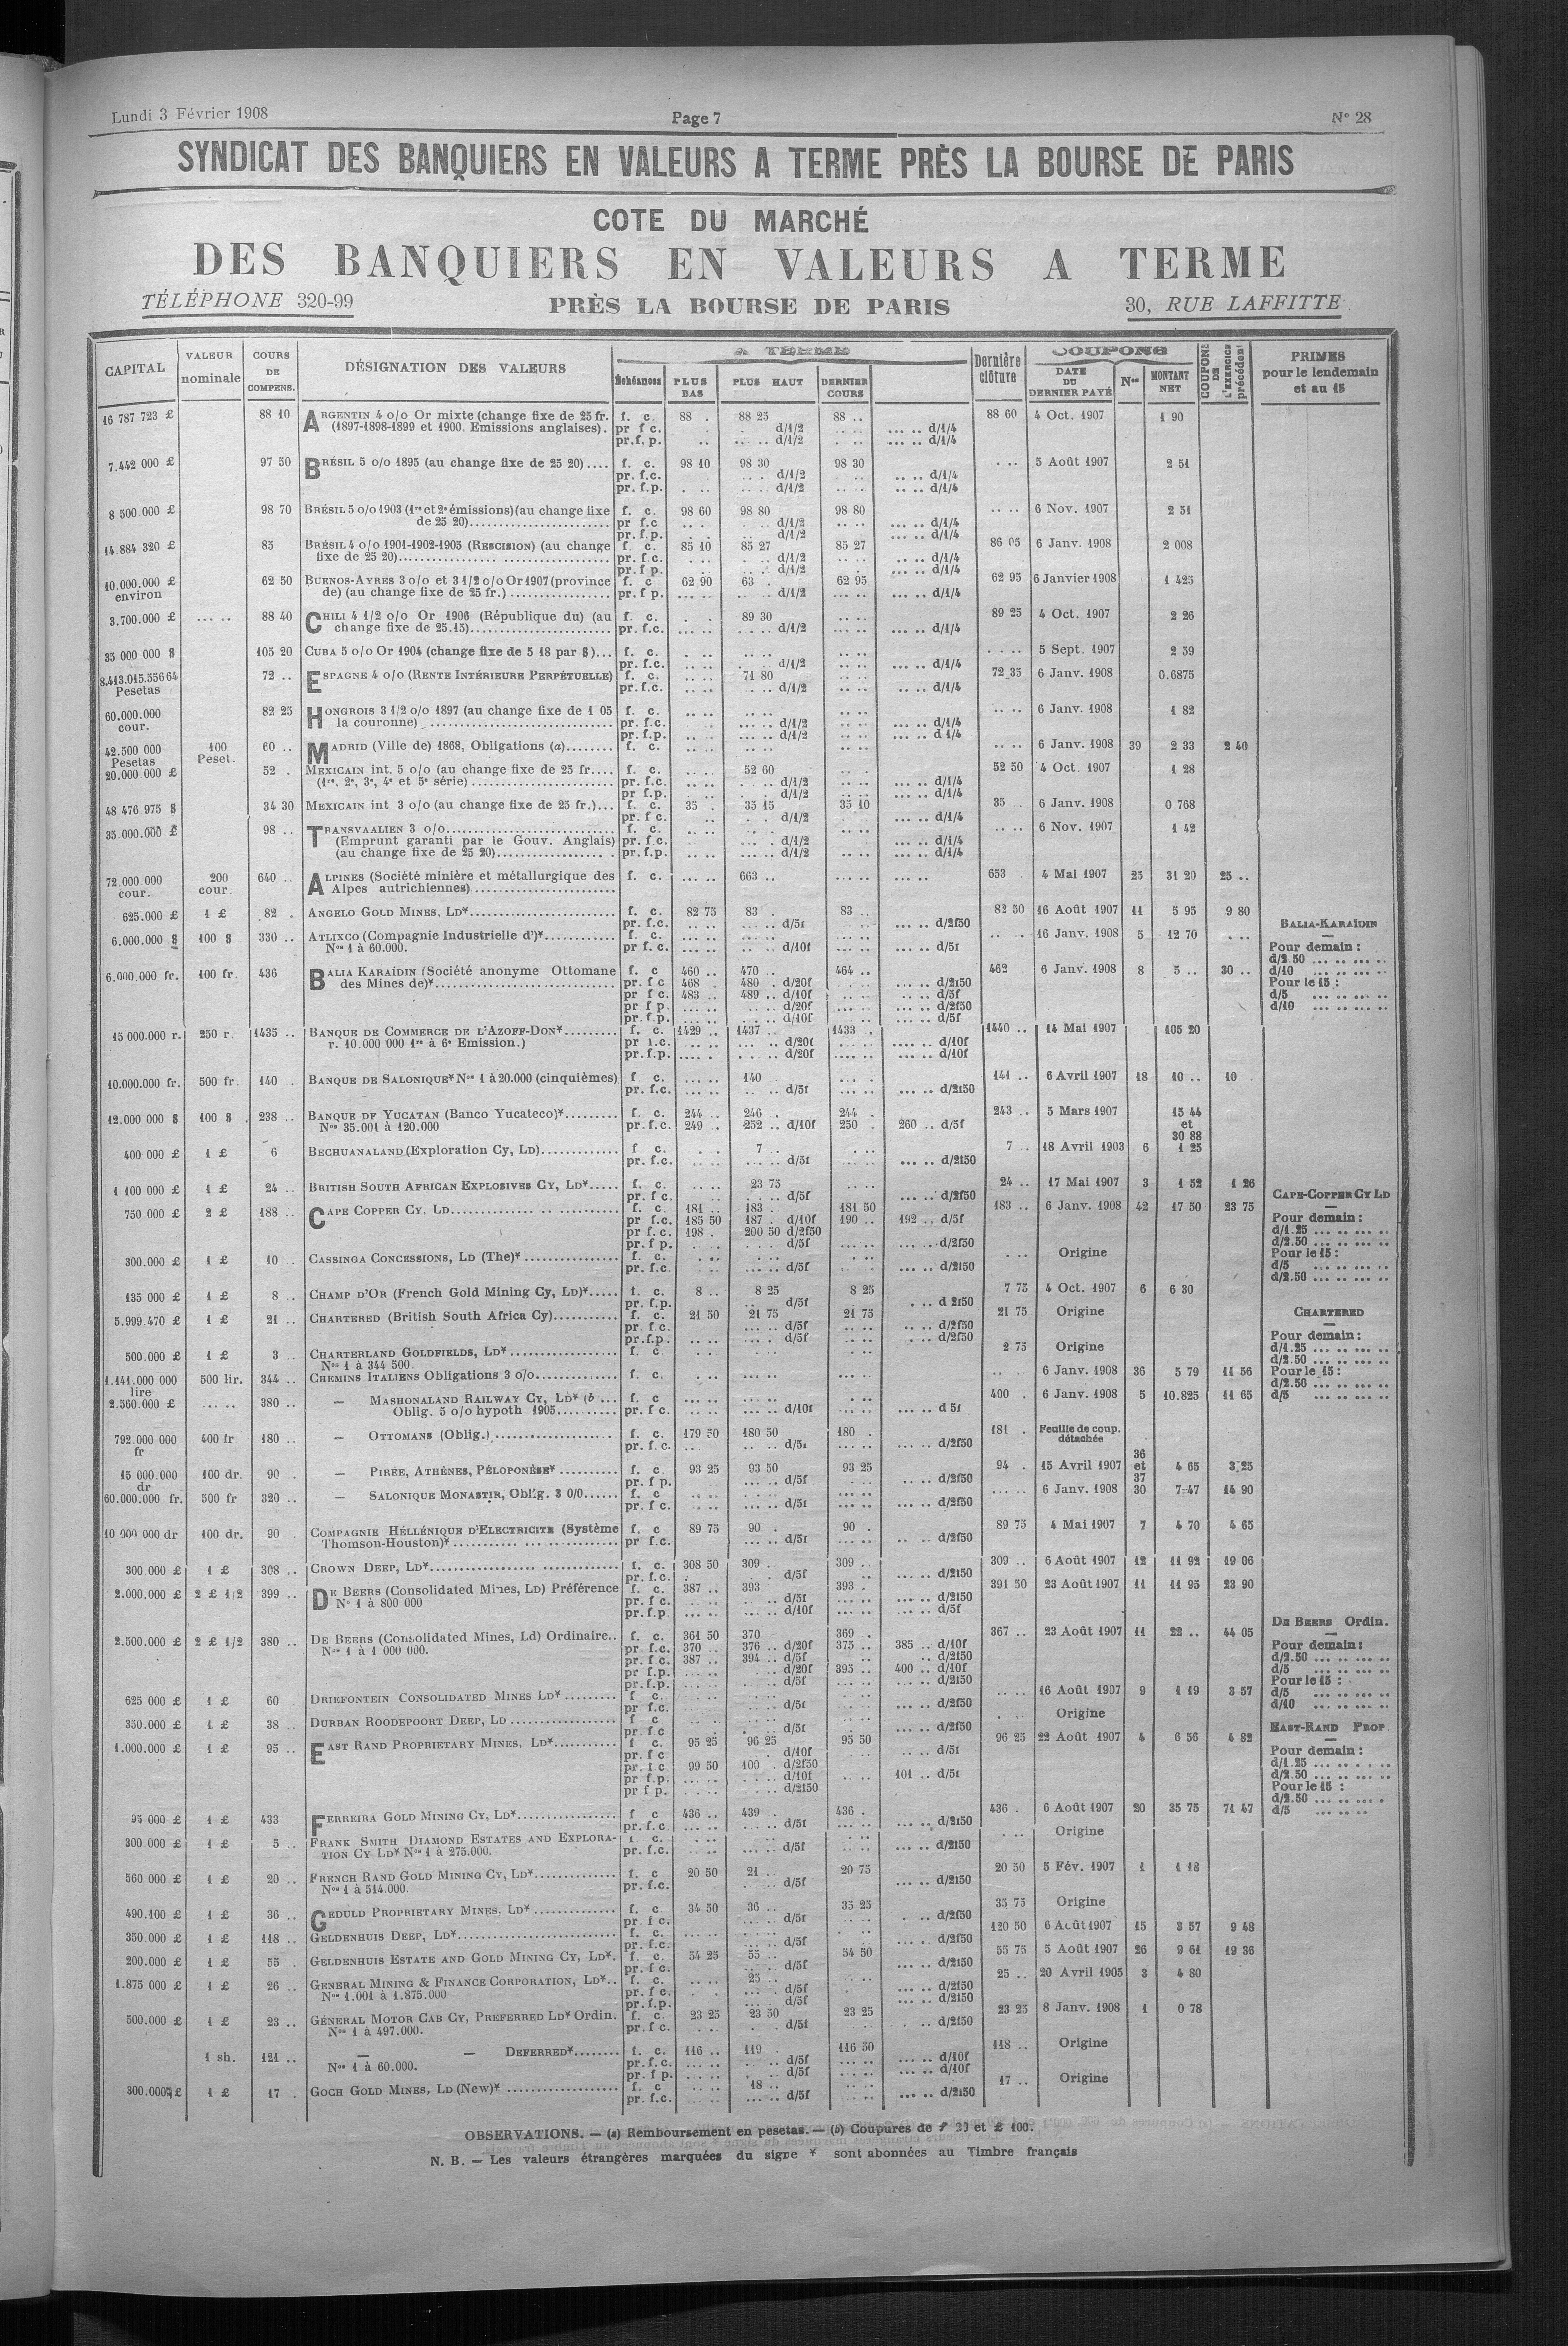 Lundi 3 Février 1908 Page 7 N° 28
SYNDICAT DES BANQUIERS EN VALEURS A TERME PRÈS LA BOURSE DE PARIS
COTE DU MARCHÉ
DES BANQUIERS EN VALEURS A TERME
TÉLÉPHONE 320-99 PRÈS LA BOURSE DE PARIS 30, RUE LAFFITTE
CAPITAL VALEUR nominale COURS DE COMPENS. DÉSIGNATION DES VALEURS A TERME Échéances PLUS BAS PLUS HAUT DERNIER COURS Dernière clôture COUPONS DATE DU DERNIER PAYÉ Nos MONTANT NET COUPONS DE L'EXERCICE précédent PRIMES pour le lendemain et au 15
16 787 723 £ 88 10 ARGENTIN 4 o/o Or mixte (change fixe de 25 fr. f. c. 88 . 88 25 88 .. 88 60 4 Oct. 1907 1 90
(1897-1898-1899 et 1900. Emissions anglaises). pr f c. d/1/2 d/1/4
pr.f. p. d/1/2 d/1/4
7.442 000 £ 97 50 BRÉSIL 5 o/o 1895 (au change fixe de 25 20).... f. c. 98 10 98 30 98 30 5 Août 1907 2 51
pr. f.c. d/1/2 d/1/4
pr. f.p. d/1/2 d/1/4
8 500 000 £ 98 70 BRÉSIL 5 o/o 1903 (1re et 2e émissions) (au change fixe f. c. 98 60 98 80 98 80 6 Nov. 1907 2 51
de 25 20) pr f.c d/1/2 d/1/4
pr. f.p. d/1/2 d/1/4
14.884 320 £ 85 BRÉSIL 4 o/o 1901-1902-1905 (RESCISION) (au change f. c. 85 10 85 27 85 27 86 05 6 Janv. 1908 2 008
fixe de 25 20) pr. f c. d/1/2 d/1/4
pr. f p. d/1/2 d/1/4
10.000.000 £ environ 62 50 BUENOS-AYRES 3 o/o et 3 1/2 o/o Or 1907 (province f. c 62 90 63 . 62 95 62 95 6 Janvier 1908 1 425
de) (au change fixe de 25 fr.) pr. f p. d/1/2 d/1/4
3.700.000 £ 88 40 CHILI 4 1/2 o/o Or 1906 (République du) (au f. c. 89 30 89 25 4 Oct. 1907 2 26
change fixe de 25.15) pr. f.c. d/1/2 d/1/4
35 000 000 $ 105 20 CUBA 5 o/o Or 1904 (change fixe de 5 18 par $)... f. c. 5 Sept. 1907 2 59
pr. f.c. d/1/2 d/1/4
8.413.015.556 64 Pesetas 72 .. ESPAGNE 4 o/o (RENTE INTÉRIEURE PERPÉTUELLE) f. c. 71 80 72 35 6 Janv. 1908 0.6875
pr. f.c. d/1/2 d/1/4
60.000.000 cour. 82 25 HONGROIS 3 1/2 o/o 1897 (au change fixe de 1 05 f. c. 6 Janv. 1908 1 82
la couronne) pr. f.c. d/1/2 d/1/4
pr. f.p. d/1/2 d 1/4
42.500 000 Pesetas 100 Peset. 60 .. MADRID (Ville de) 1868, Obligations (a) f. c. 6 Janv. 1908 39 2 33 2 40
20.000 000 £ 52 . MEXICAIN int. 5 o/o (au change fixe de 25 fr.... f. c. 52 60 52 50 4 Oct. 1907 1 28
(1re, 2e, 3e, 4e et 5e série) pr. f.c. d/1/2 d/1/4
pr f.p. d/1/2 d/1/4
48 476 975 $ 34 30 MEXICAIN int 3 o/o (au change fixe de 25 fr.)... f. c. 35 . 35 15 35 10 35 . 6 Janv. 1908 0 768
pr. f c. d/1/2 d/1/4
35.000.000 £ 98 .. TRANSVAALIEN 3 o/o f. c. 6 Nov. 1907 1 42
(Emprunt garanti par le Gouv. Anglais) pr. f.c. d/1/2 d/1/4
(au change fixe de 25 20) pr. f.p. d/1/2 d/1/4
72.000.000 cour. 200 cour. 640 .. ALPINES (Société minière et métallurgique des f. c. 663 .. 653 4 Mai 1907 25 31 20 25 ..
Alpes autrichiennes)
625.000 £ 1 £ 82 . ANGELO GOLD MINES, LD* f. c. 82 75 83 . 83 .. 82 50 16 Août 1907 11 5 95 9 80
pr. f.c. d/5f d/2f50 BALIA-KARAÏDIN
6.000.000 $ 100 $ 330 .. ATLIXCO (Compagnie Industrielle d')* f. c. 16 Janv. 1908 5 12 70
Nos 1 à 60.000. pr f. c. d/10f d/5f Pour demain :
d/2.50
6.000.000 fr. 100 fr. 436 BALIA KARAÏDIN (Société anonyme Ottomane f. c 460 .. 470 .. 464 .. 462 6 Janv. 1908 8 5 .. 30 .. d/10
des Mines de)* pr. f c 468 . 480 . d/20f d/2f50 Pour le 15 :
pr f c. 483 .. 489 .. d/10f d/5f d/5
pr f p. d/20f d/2f50 d/10
pr. f.p. d/10f d/5f
15 000.000 r. 250 r. 1435 .. BANQUE DE COMMERCE DE L'AZOFF-DON* f. c. 1429 .. 1437 1433 .. 1440 .. 14 Mai 1907 105 20
r. 10.000 000 1re à 6e Emission.) pr f.c. d/20f d/10f
pr. f.p. d/20f d/10f
10.000.000 fr. 500 fr. 140 .. BANQUE DE SALONIQUE* Nos 1 à 20.000 (cinquièmes) f c. 140 141 .. 6 Avril 1907 18 10 .. 10
pr. f.c. d/5f d/2f50
12.000 000 $ 100 $ 238 .. BANQUE DE YUCATAN (Banco Yucateco)* f. c. 244 .. 246 .. 244 . 243 .. 5 Mars 1907 15 44
Nos 35.001 à 120.000 pr. f.c. 249 .. 252 .. d/10f 250 .. 260 .. d/5f et
30 88
400 000 £ 1 £ 6 BECHUANALAND (Exploration Cy, LD) f. c. 7 . 7 . 18 Avril 1903 6 1 25
pr. f.c. d/5f d/2f50
1 100 000 £ 1 £ 24 .. BRITISH SOUTH AFRICAN EXPLOSIVES CY, LD* f. c. 23 75 24 .. 17 Mai 1907 3 1 52 1 26
pr. f c. d/5f d/2f50 CAPE-COPPER CY LD
750 000 £ 2 £ 188 .. CAPE COPPER CY. LD f. c. 181 .. 183 . 181 50 183 .. 6 Janv. 1908 42 17 50 23 75
pr f.c. 185 50 187 . d/10f 190 .. 192 .. d/5f Pour demain :
pr. f c. 198 . 200 50 d/2f50 d/1.25
pr. f p. d/5f d/2f50 d/2.50
300.000 £ 1 £ 10 CASSINGA CONCESSIONS, LD (The)* f. c. Origine Pour le 15 :
pr. f.c. d/5f d/2f50 d/5
d/2.50
135 000 £ 1 £ 8 .. CHAMP D'OR (French Gold Mining Cy, LD)* f. c. 8 .. 8 25 8 25 7 75 4 Oct. 1907 6 6 30
pr. f.p. d/5f d 2f50
5.999.470 £ 1 £ 21 .. CHARTERED (British South Africa Cy) f. c. 21 50 21 75 21 75 21 75 Origine CHARTERED
pr. f.c. d/5f d/2f50
pr.f.p. d/5f d/2f50 Pour demain :
500.000 £ 1 £ 3 .. CHARTERLAND GOLDFIELDS, LD* f. c 2 75 Origine d/1.25
Nos 1 à 344 500. d/2.50
1.141.000 000 lire 500 lir. 344 .. CHEMINS ITALIENS Obligations 3 o/o f. c. 6 Janv. 1908 36 5 79 11 56 Pour le 15 :
d/2.50
2.560.000 £ 380 .. — MASHONALAND RAILWAY CY, LD* (b ... f. c 400 . 6 Janv. 1908 5 10.825 11 65 d/5
Oblig. 5 o/o hypoth 1905 pr. f c. d/10f d 5f
792.000 000 fr 400 fr 180 .. — OTTOMANS (Oblig.) f. c. 179 50 180 50 180 . 181 . Feuille de coup. détachée
pr. f. c. d/5f d/2f50
15 000.000 dr 100 dr. 90 . — PIRÉE, ATHÈNES, PÉLOPONÈSE* f. c. 93 25 93 50 93 25 94 . 15 Avril 1907 36 et 37 4 65 3,25
pr. f p. d/5f d/2f50
60.000.000 fr. 500 fr 320 .. — SALONIQUE MONASTIR, Oblig. 3 0/0 f. c 6 Janv. 1908 30 7=47 14 90
pr. f c. d/5f d/2f50
10 000 000 dr 100 dr. 90 COMPAGNIE HÉLLÉNIQUE D'ÉLECTRICITÉ (Système f. c 89 75 90 . 90 . 89 75 4 Mai 1907 7 4 70 4 65
Thomson-Houston)* pr f.c. d/5f d/2f50
300 000 £ 1 £ 308 .. CROWN DEEP, LD* f. c. 308 50 309 . 309 .. 309 .. 6 Août 1907 12 11 92 19 06
pr. f.c. d/5f d/2f50
2.000.000 £ 2 £ 1/2 399 .. DE BEERS (Consolidated Mines, LD) Préférence f. c. 387 .. 393 393 . 391 50 23 Août 1907 11 11 95 23 90
N° 1 à 800 000 pr. f c d/5f d/2f50
pr. f.p. d/10f d/5f DE BEERS Ordin.
2.500.000 £ 2 £ 1/2 380 .. DE BEERS (Consolidated Mines, Ld) Ordinaire.. f. c. 361 50 370 369 . 367 .. 23 Août 1907 11 22 .. 44 05
Nos 1 à 1 000 000. pr. f.c. 370 .. 376 .. d/20f 375 .. 385 .. d/10f Pour demain :
pr. f c. 387 .. 394 .. d/5f d/2f50 d/2.50
pr f.p. d/20f 395 .. 400 .. d/10f d/5
pr. f.p. d/5f d/2f50 Pour le 15 :
625 000 £ 1 £ 60 DRIEFONTEIN CONSOLIDATED MINES LD* f c. 16 Août 1907 9 1 19 3 57 d/5
pr. f.c. d/5f d/2f50 d/10
350.000 £ 1 £ 38 .. DURBAN ROODEPOORT DEEP, LD f. c. Origine
pr. f c d/5f d/2f50 EAST-RAND PROP
1.000.000 £ 1 £ 95 .. EAST RAND PROPRIETARY MINES, LD* f. c. 95 25 96 25 95 50 96 25 22 Août 1907 4 6 56 4 82
pr. f c d/10f d/5f Pour demain :
pr. f.c 99 50 100 . d/2f50 d/1.25
pr f.p. d/10f 101 .. d/5f d/2.50
pr f p. d/2f50 Pour le 15 :
d/2.50
95 000 £ 1 £ 433 FERREIRA GOLD MINING CY, LD* f c 436 .. 439 . 436 . 436 . 6 Août 1907 20 35 75 71 47 d/5
pr. f.c d/5f d/2f50
300.000 £ 1 £ 5 .. FRANK SMITH DIAMOND ESTATES AND EXPLORA- f. c. Origine
TION CY LD* Nos 1 à 275.000. pr. f.c. d/5f d/2f50
560 000 £ 1 £ 20 .. FRENCH RAND GOLD MINING CY, LD* f. c 20 50 21 .. 20 75 20 50 5 Fév. 1907 1 1 18
Nos 1 à 514.000. pr. f.c. d/5f d/2f50
490.100 £ 1 £ 36 .. GEDULD PROPRIETARY MINES, LD* f. c 34 50 36 .. 35 25 35 75 Origine
pr. f c. d/5f d/2f50
350.000 £ 1 £ 118 .. GELDENHUIS DEEP, LD* f. c. 120 50 6 Août 1907 15 3 57 9 48
pr. f.c. d/5f d/2f50
200.000 £ 1 £ 55 . GELDENHUIS ESTATE AND GOLD MINING CY, LD*. f. c. 54 25 55 .. 54 50 55 75 5 Août 1907 26 9 61 19 36
pr. f c. d/5f d/2f50
1.875 000 £ 1 £ 26 .. GENERAL MINING & FINANCE CORPORATION, LD*.. f. c. 25 .. 25 .. 20 Avril 1905 3 4 80
Nos 1.001 à 1.875.000 pr. f c. d/5f d/2f50
pr. f.p. d/5f d/2f50
500.000 £ 1 £ 23 .. GÉNERAL MOTOR CAB CY, PREFERRED LD* Ordin. f. c. 23 25 23 50 23 25 23 25 8 Janv. 1908 1 0 78
Nos 1 à 497.000. pr. f c. d/5f d/2f50
1 sh. 121 .. — — DEFERRED* f. c. 116 .. 119 . 116 50 118 .. Origine
Nos 1 à 60.000. pr. f.c. d/5f d/10f
pr. f p. d/5f d/10f
300.000 £ 1 £ 17 . GOCH GOLD MINES, LD (New)* f. c 18 .. 17 .. Origine
pr. f.c. d/5f d/2f50
OBSERVATIONS. — (a) Remboursement en pesetas. — (b) Coupures de £ 20 et £ 100.
N. B. — Les valeurs étrangères marquées du signe * sont abonnées au Timbre français